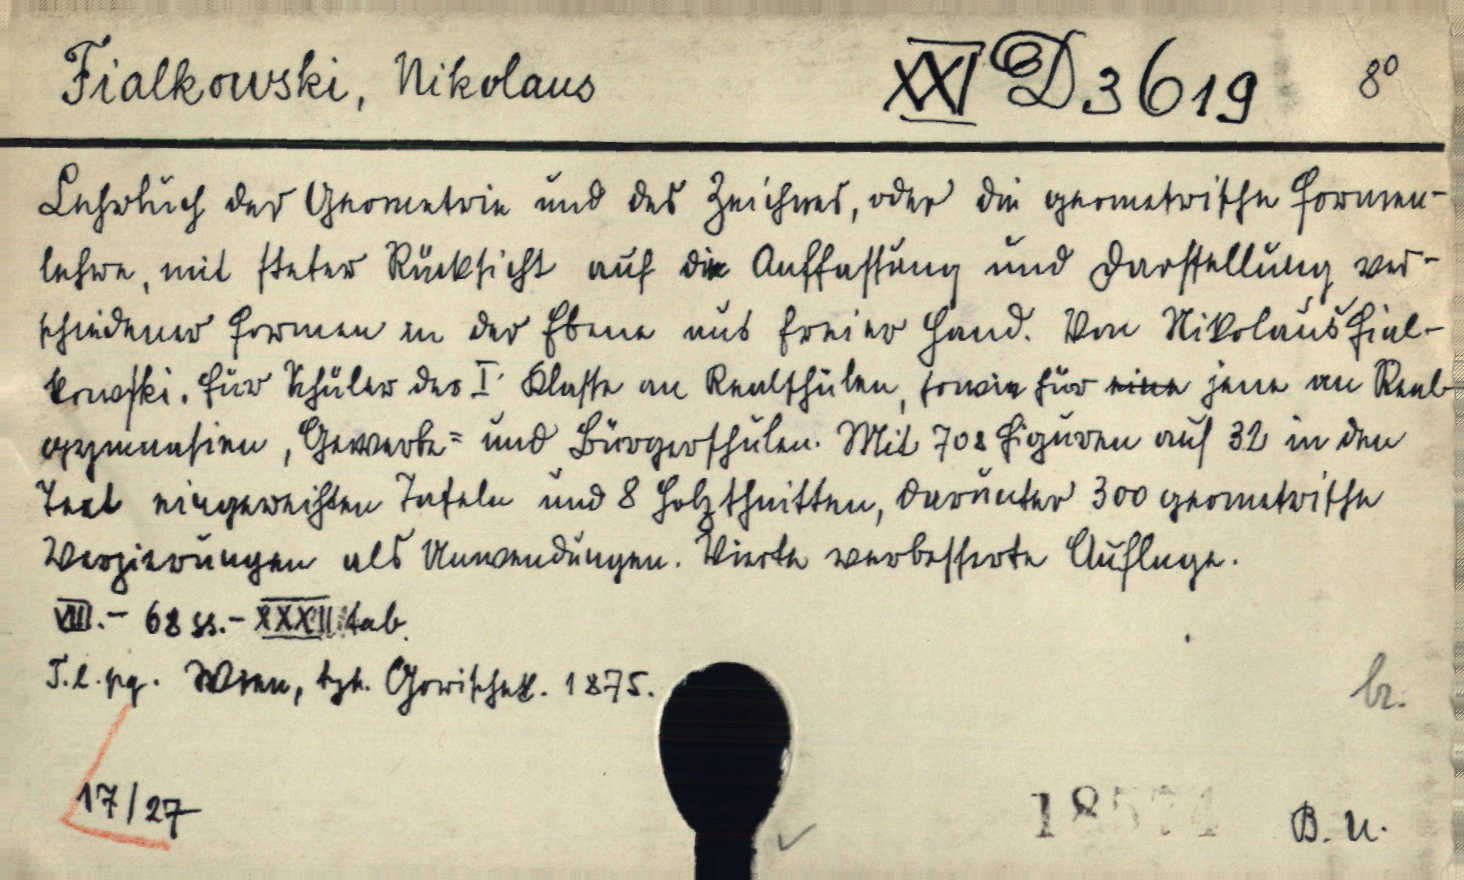 Fialkowski, Nikolaus XXI D 3619 8°
Lehrbuch der Geometrie und des Zeichnes, oder die geometrische Formen-
lehre, mit steter Rücksicht auf die Auffassung und Darstellung ver-
schiedener Formen in der Ebene aus freier Hand. Von Nikolaus Fial-
kowski. Für Schüler der I. Klasse an Realschulen, sowie für eine jene an Real-
gymnasien, Gewerbe= und Bürgerschulen. Mit 708 Figuren auf 32 in den
Text eingereihten Tafeln und 8 Holzschnitten, darunter 300 geometrische
Verzierungen als Anwendungen. Vierte verbesserte Auflage.
VIII.- 68 ss.- XXXII tab.
T. l. pg. Wien, tgr. Gorischek. 1875.
br.
17/27
B. U.